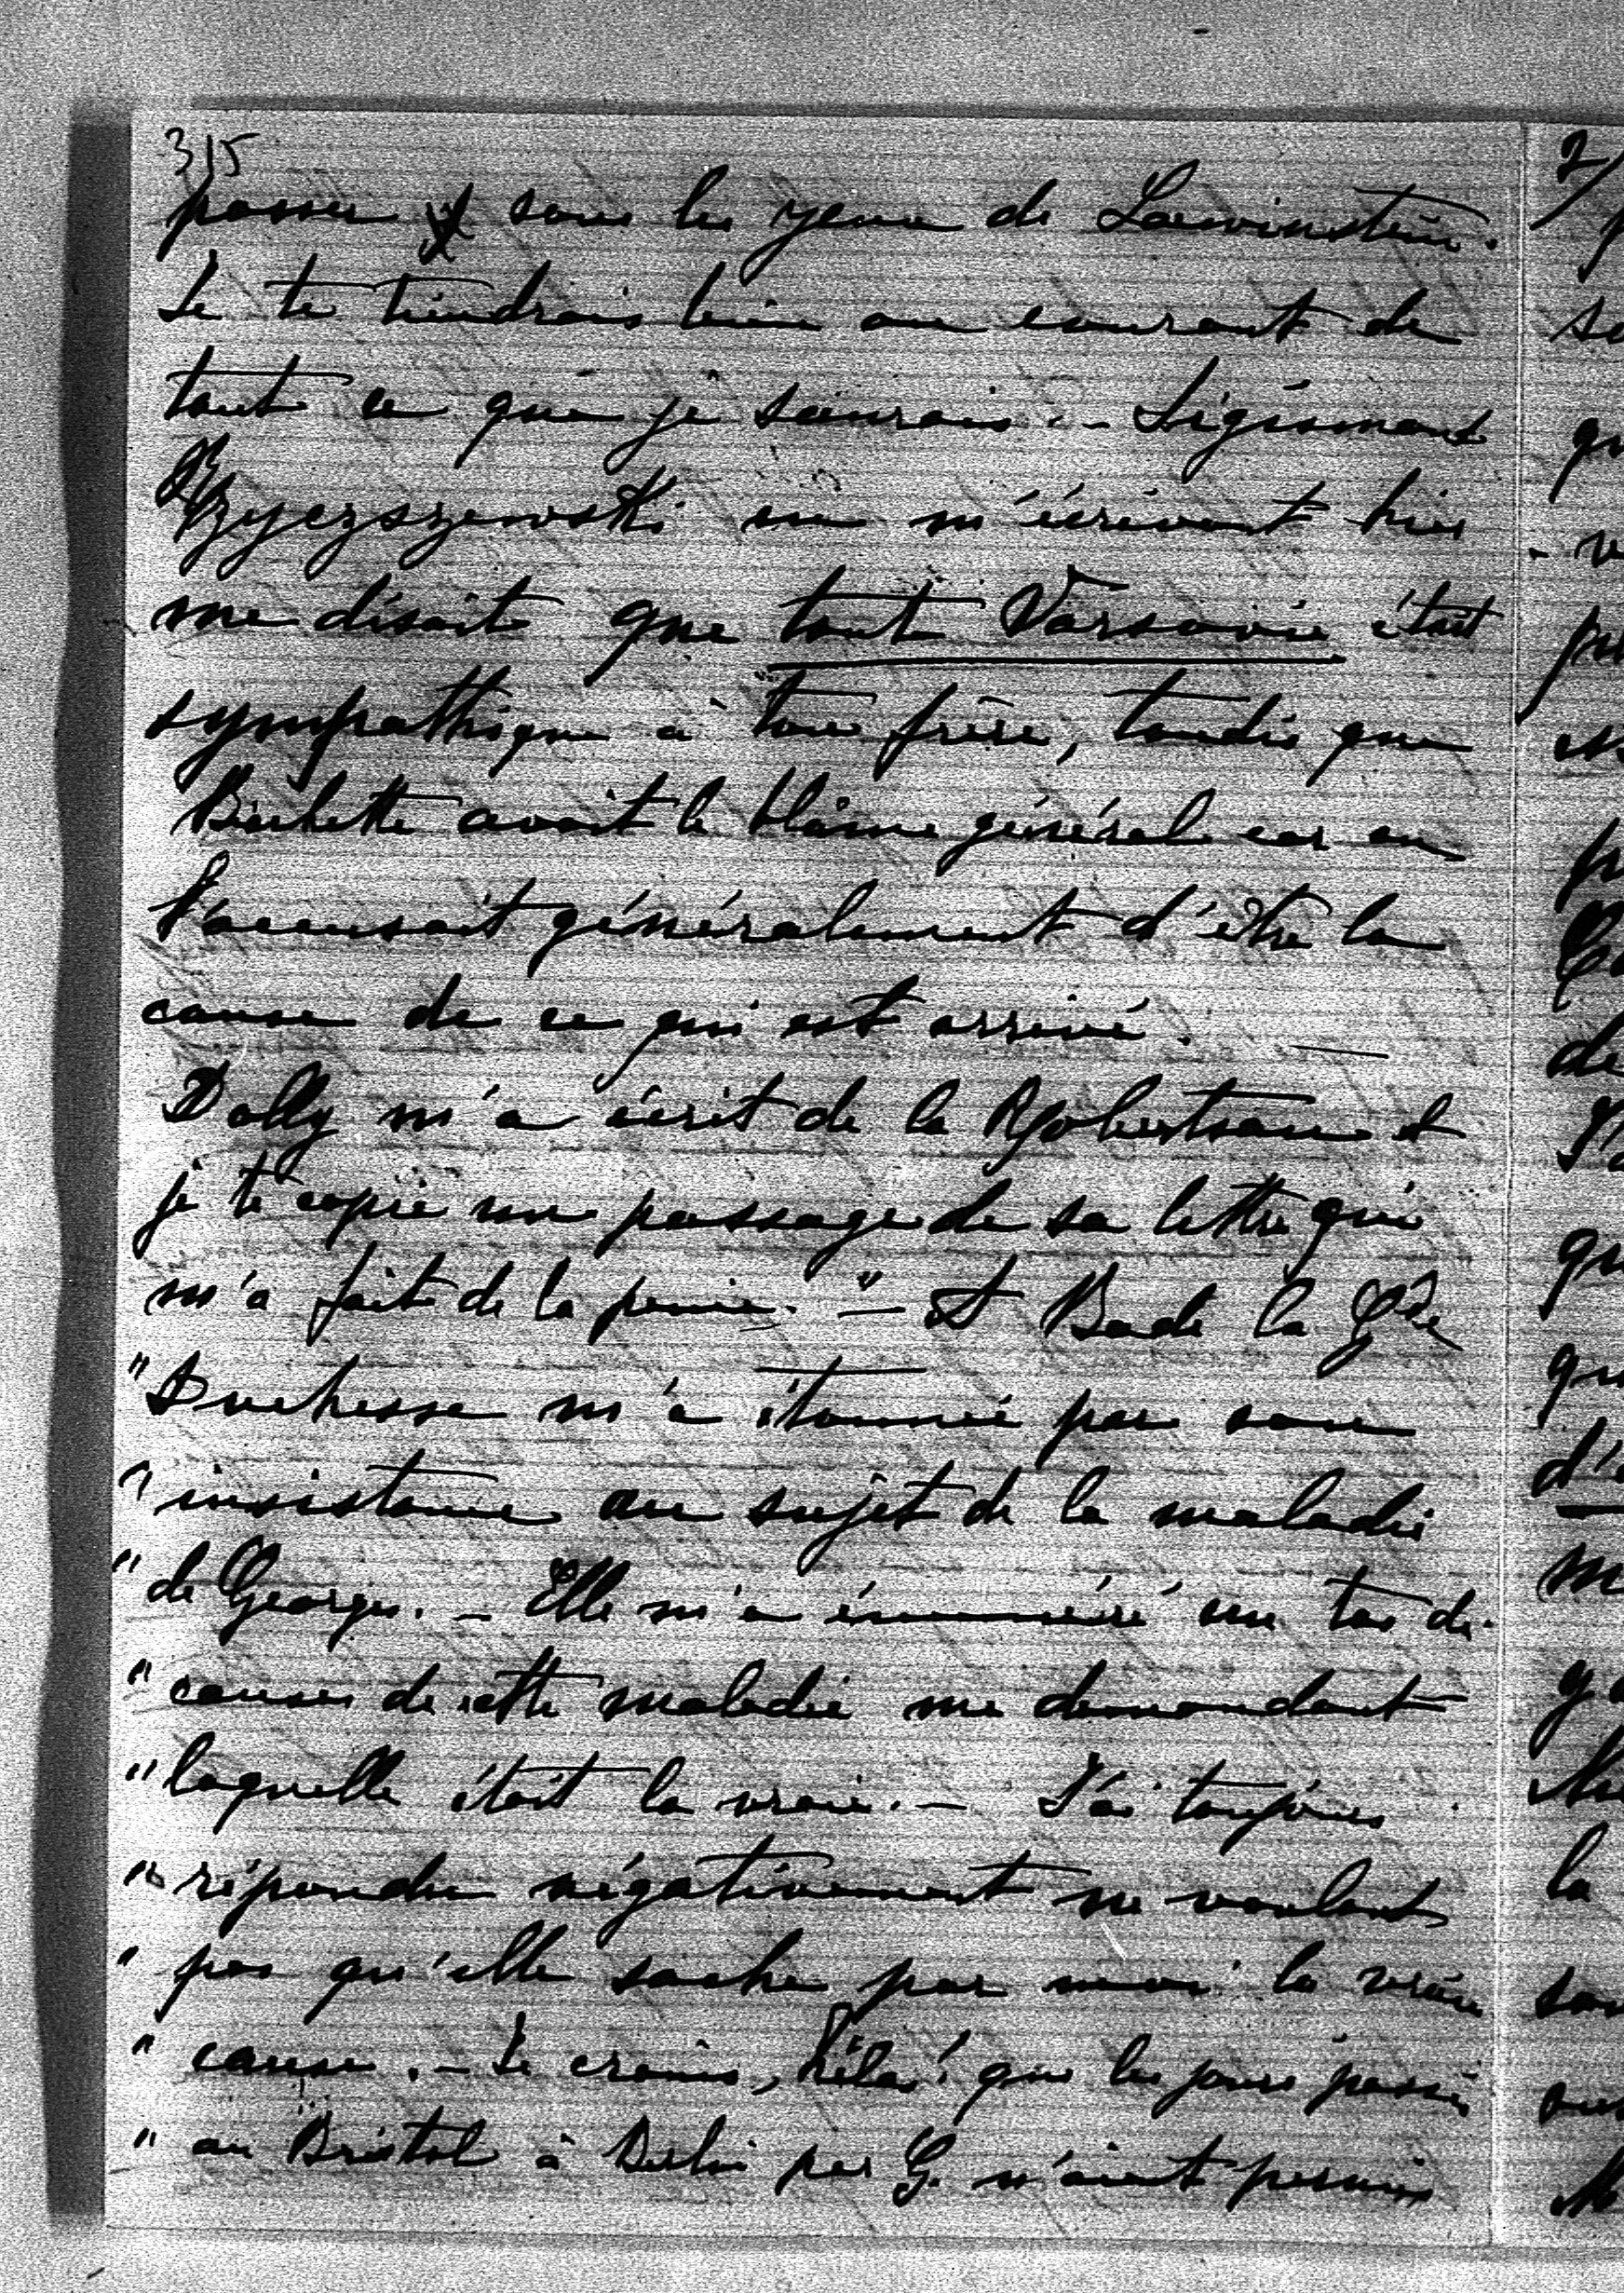 315
passer sous les yeux de Loewinstein.
Je te tiendrais bien au courant de
tout ce que je saurais. - Sigismond
m'écrivant hier
me disait que tout Varsovie était
sympathique à ton frère, tandis que
avait le blâme général car on
l'accusait généralement d'être la
cause de ce qui est arrivé. —
Dolly m'a écrit de la Robertsau et
je te copie un passage de sa lettre qui
m'a fait de la peine. "— A Bade la Gde
"Duchesse m'a étonnée par son
"insistance au sujet de la maladie
"de Georges. - Elle m'a énuméré un tas de
"causes de cette maladie me demandant
"laquelle était la vraie. - J'ai toujours
"répondu négativement ne voulant
"pas qu'elle sache par moi la vraie
"cause. - Je crains, hélas! que les jours passés
"au Bristol à Berlin par G. n'aient permis